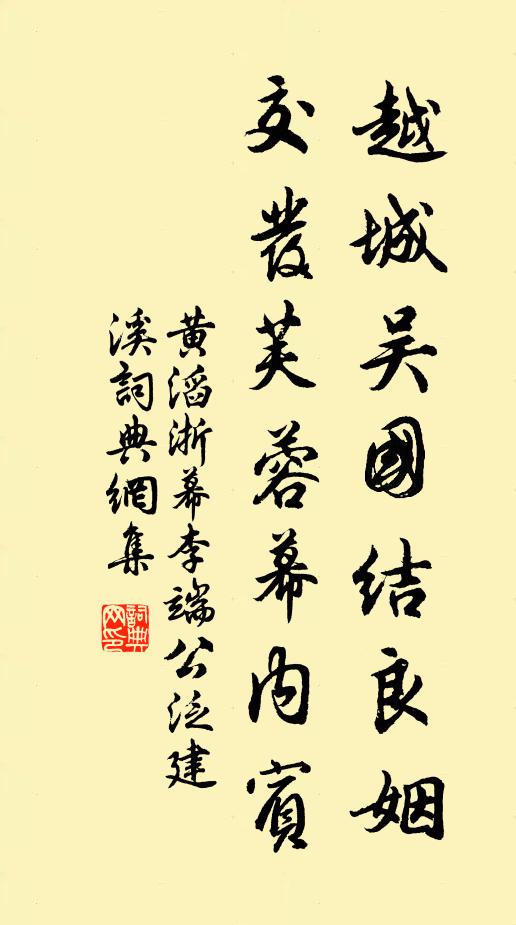 越城吴國結良姻
交發芙蓉幕内賓
黄滔浙幕李端公泛建
溪詞典網集
詞典網印